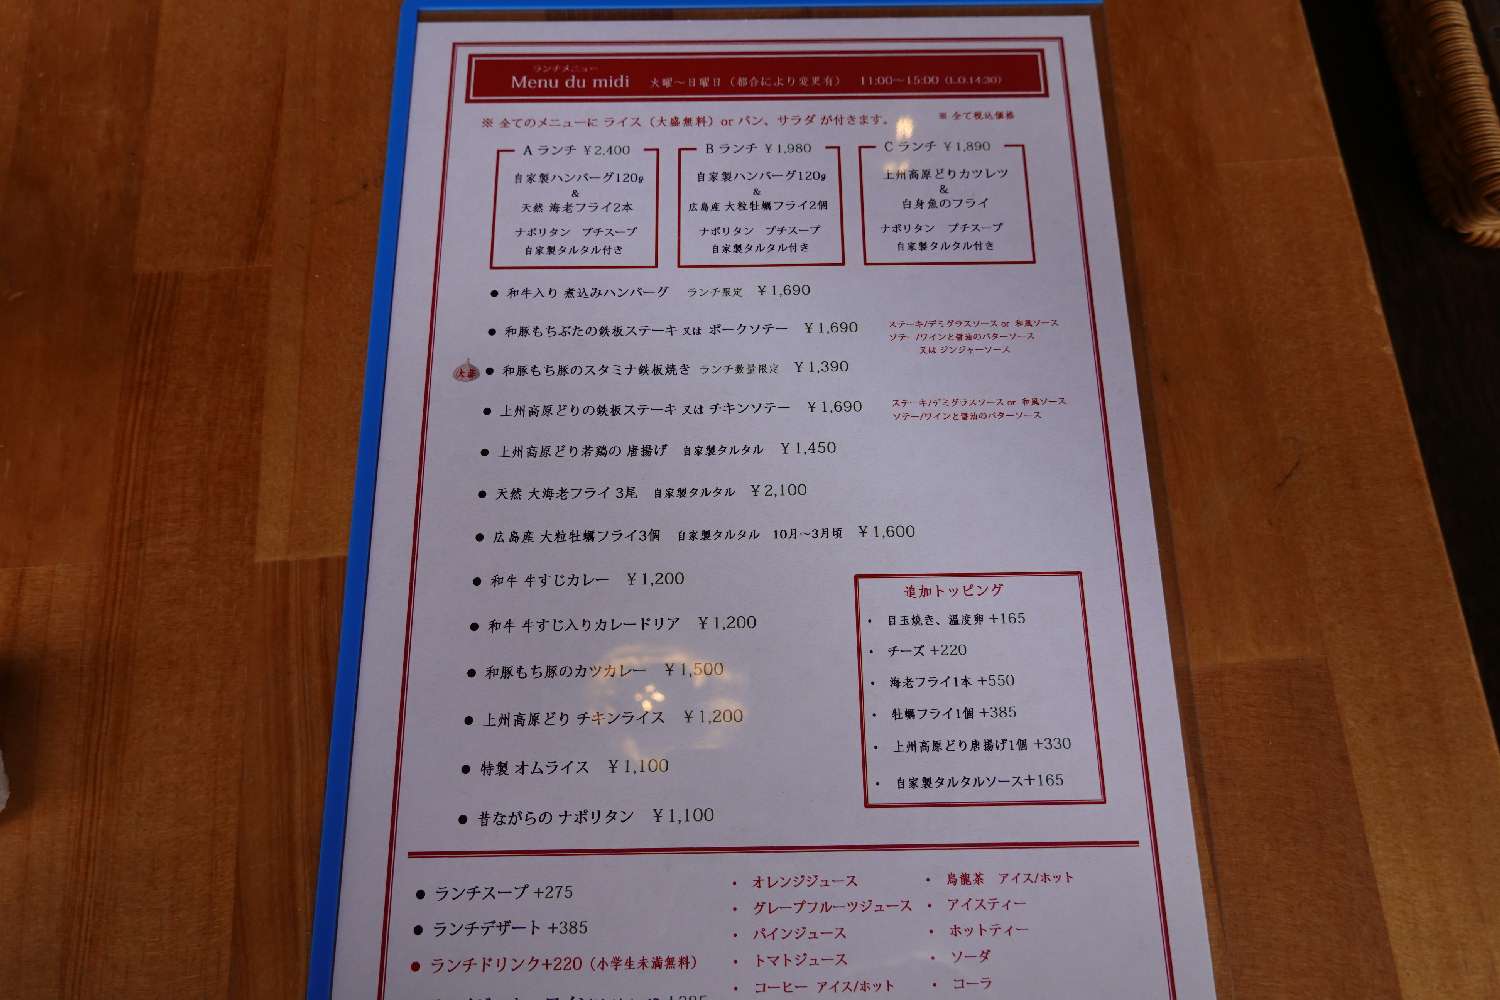 ランチメニュー
Menu du midi 火曜～日曜日（都合により変更有） 11:00～15:00 (L.O.14:30)
※ 全てのメニューに ライス（大盛無料）or パン、サラダ が付きます。 ※ 全て税込価格
A ランチ ￥2,400
自家製ハンバーグ120g
&
天然 海老フライ2本
ナポリタン プチスープ
自家製タルタル付き
B ランチ ￥1,980
自家製ハンバーグ120g
&
広島産 大粒牡蠣フライ2個
ナポリタン プチスープ
自家製タルタル付き
C ランチ ￥1,890
上州高原どりカツレツ
&
白身魚のフライ
ナポリタン プチスープ
自家製タルタル付き
● 和牛入り 煮込みハンバーグ ランチ限定 ￥1,690
● 和豚もちぶたの鉄板ステーキ 又は ポークソテー ￥1,690
ステーキ/デミグラスソース or 和風ソース
ソテー/ワインと醤油のバターソース
又は ジンジャーソース
大蒜 ● 和豚もち豚のスタミナ鉄板焼き ランチ数量限定 ￥1,390
● 上州高原どりの鉄板ステーキ 又は チキンソテー ￥1,690
ステーキ/デミグラスソース or 和風ソース
ソテー/ワインと醤油のバターソース
● 上州高原どり若鶏の 唐揚げ 自家製タルタル ￥1,450
● 天然 大海老フライ 3尾 自家製タルタル ￥2,100
● 広島産 大粒牡蠣フライ3個 自家製タルタル 10月～3月頃 ￥1,600
● 和牛 牛すじカレー ￥1,200
● 和牛 牛すじ入りカレードリア ￥1,200
● 和豚もち豚のカツカレー ￥1,500
● 上州高原どり チキンライス ￥1,200
● 特製 オムライス ￥1,100
● 昔ながらの ナポリタン ￥1,100
追加トッピング
・ 目玉焼き、温度卵 +165
・ チーズ +220
・ 海老フライ1本 +550
・ 牡蠣フライ1個 +385
・ 上州高原どり唐揚げ1個 +330
・ 自家製タルタルソース+165
● ランチスープ +275
● ランチデザート +385
● ランチドリンク+220（小学生未満無料）
・ オレンジジュース
・ グレープフルーツジュース
・ パインジュース
・ トマトジュース
・ コーヒー アイス/ホット
・ 烏龍茶 アイス/ホット
・ アイスティー
・ ホットティー
・ ソーダ
・ コーラ